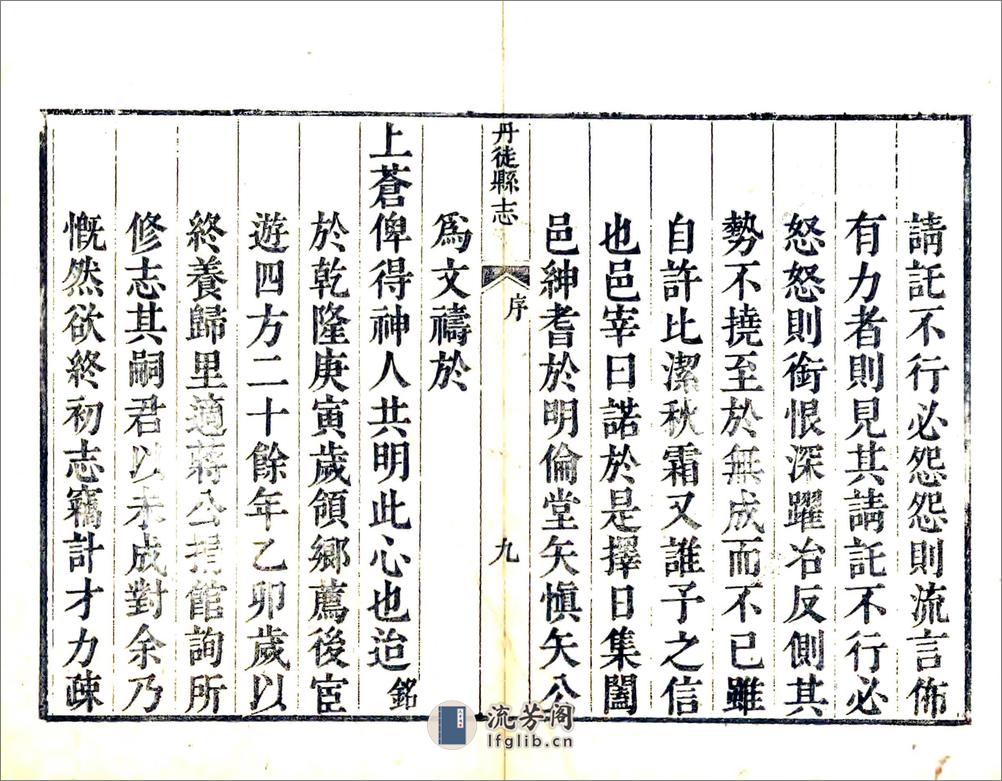 請託不行必怨怨則流言佈
有力者則見其請託不行必
怒怒則銜恨深躍冶反側其
勢不撓至於無成而不已雖
自許比潔秋霜又誰予之信
也邑宰曰諾於是擇日集闔
邑紳耆於明倫堂矢慎矢公
丹徒縣志
序
九
爲文禱於
上蒼俾得神人共明此心也迨銘
於乾隆庚寅歲領鄉薦後宦
遊四方二十餘年乙卯歲以
終養歸里適蔣公捐館詢所
修志其嗣君以未成對余乃
慨然欲終初志竊計才力疎
流芳阁
lfglib.cn